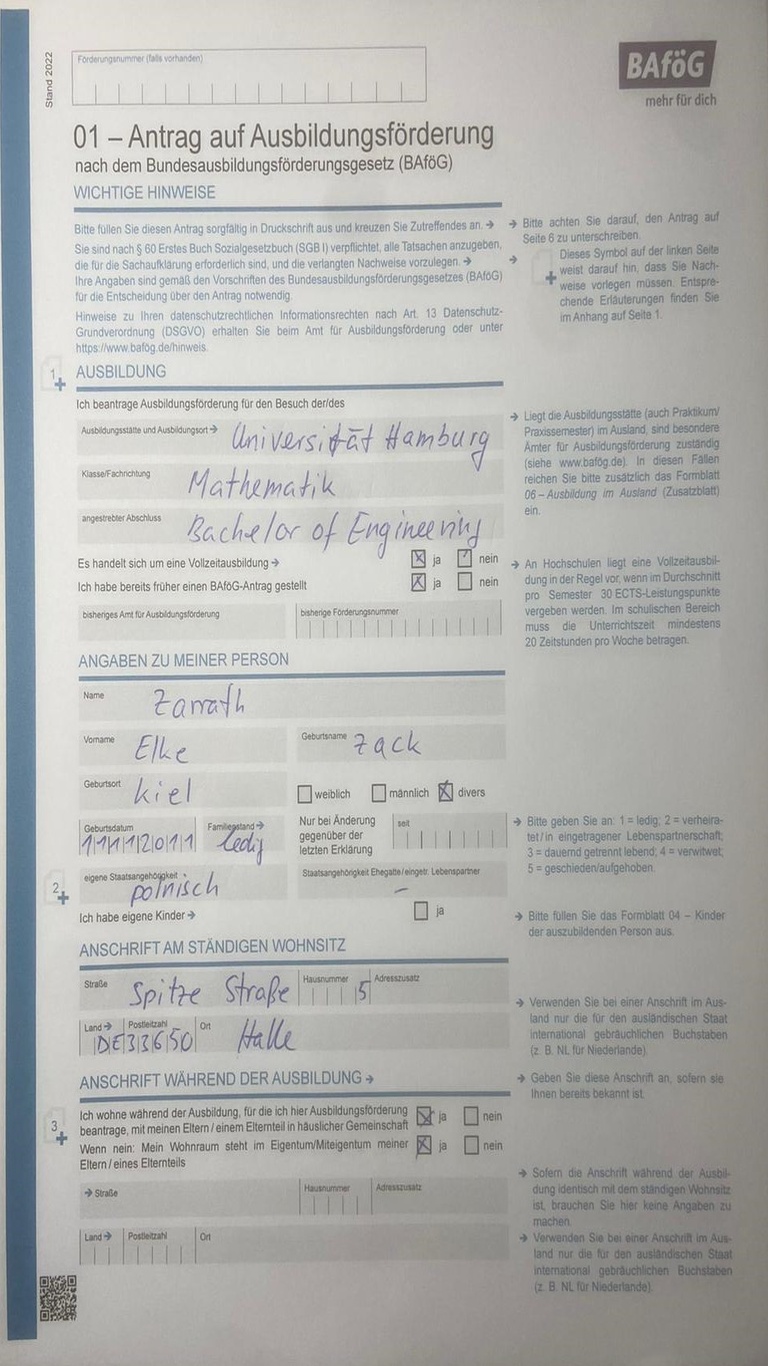 Stand 2022
Förderungsnummer (falls vorhanden)
BAföG
mehr für dich
01 – Antrag auf Ausbildungsförderung
nach dem Bundesausbildungsförderungsgesetz (BAföG)
WICHTIGE HINWEISE
Bitte füllen Sie diesen Antrag sorgfältig in Druckschrift aus und kreuzen Sie Zutreffendes an. →
Sie sind nach § 60 Erstes Buch Sozialgesetzbuch (SGB I) verpflichtet, alle Tatsachen anzugeben,
die für die Sachaufklärung erforderlich sind, und die verlangten Nachweise vorzulegen. →
Ihre Angaben sind gemäß den Vorschriften des Bundesausbildungsförderungsgesetzes (BAföG)
für die Entscheidung über den Antrag notwendig.
Hinweise zu Ihren datenschutzrechtlichen Informationsrechten nach Art. 13 Datenschutz-
Grundverordnung (DSGVO) erhalten Sie beim Amt für Ausbildungsförderung oder unter
https://www.bafög.de/hinweis.
→ Bitte achten Sie darauf, den Antrag auf
Seite 6 zu unterschreiben.
→ Dieses Symbol auf der linken Seite
weist darauf hin, dass Sie Nach-
weise vorlegen müssen. Entspre-
chende Erläuterungen finden Sie
im Anhang auf Seite 1.
1 AUSBILDUNG
Ich beantrage Ausbildungsförderung für den Besuch der/des
Ausbildungsstätte und Ausbildungsort → Universität Hamburg
Klasse/Fachrichtung Mathematik
angestrebter Abschluss Bachelor of Engineering
Es handelt sich um eine Vollzeitausbildung → ja nein
Ich habe bereits früher einen BAföG-Antrag gestellt ja nein
bisheriges Amt für Ausbildungsförderung bisherige Förderungsnummer
→ Liegt die Ausbildungsstätte (auch Praktikum/
Praxissemester) im Ausland, sind besondere
Ämter für Ausbildungsförderung zuständig
(siehe www.bafög.de). In diesen Fällen
reichen Sie bitte zusätzlich das Formblatt
06 – Ausbildung im Ausland (Zusatzblatt)
ein.
→ An Hochschulen liegt eine Vollzeitausbil-
dung in der Regel vor, wenn im Durchschnitt
pro Semester 30 ECTS-Leistungspunkte
vergeben werden. Im schulischen Bereich
muss die Unterrichtszeit mindestens
20 Zeitstunden pro Woche betragen.
ANGABEN ZU MEINER PERSON
Name Zarrath
Vorname Elke Geburtsname Zack
Geburtsort Kiel weiblich männlich divers
Geburtsdatum 11112011 Familienstand → ledig Nur bei Änderung gegenüber der letzten Erklärung seit
2 eigene Staatsangehörigkeit polnisch Staatsangehörigkeit Ehegatte/eingetr. Lebenspartner –
Ich habe eigene Kinder → ja
→ Bitte geben Sie an: 1 = ledig; 2 = verheira-
tet/in eingetragener Lebenspartnerschaft;
3 = dauernd getrennt lebend; 4 = verwitwet;
5 = geschieden/aufgehoben.
→ Bitte füllen Sie das Formblatt 04 – Kinder
der auszubildenden Person aus.
ANSCHRIFT AM STÄNDIGEN WOHNSITZ
Straße Spitze Straße Hausnummer 5 Adresszusatz
Land → DE Postleitzahl 33650 Ort Halle
→ Verwenden Sie bei einer Anschrift im Aus-
land nur die für den ausländischen Staat
international gebräuchlichen Buchstaben
(z. B. NL für Niederlande).
ANSCHRIFT WÄHREND DER AUSBILDUNG →
→ Geben Sie diese Anschrift an, sofern sie
Ihnen bereits bekannt ist.
3 Ich wohne während der Ausbildung, für die ich hier Ausbildungsförderung
beantrage, mit meinen Eltern / einem Elternteil in häuslicher Gemeinschaft ja nein
Wenn nein: Mein Wohnraum steht im Eigentum/Miteigentum meiner
Eltern / eines Elternteils ja nein
→ Straße Hausnummer Adresszusatz
Land → Postleitzahl Ort
→ Sofern die Anschrift während der Ausbil-
dung identisch mit dem ständigen Wohnsitz
ist, brauchen Sie hier keine Angaben zu
machen.
→ Verwenden Sie bei einer Anschrift im Aus-
land nur die für den ausländischen Staat
international gebräuchlichen Buchstaben
(z. B. NL für Niederlande).